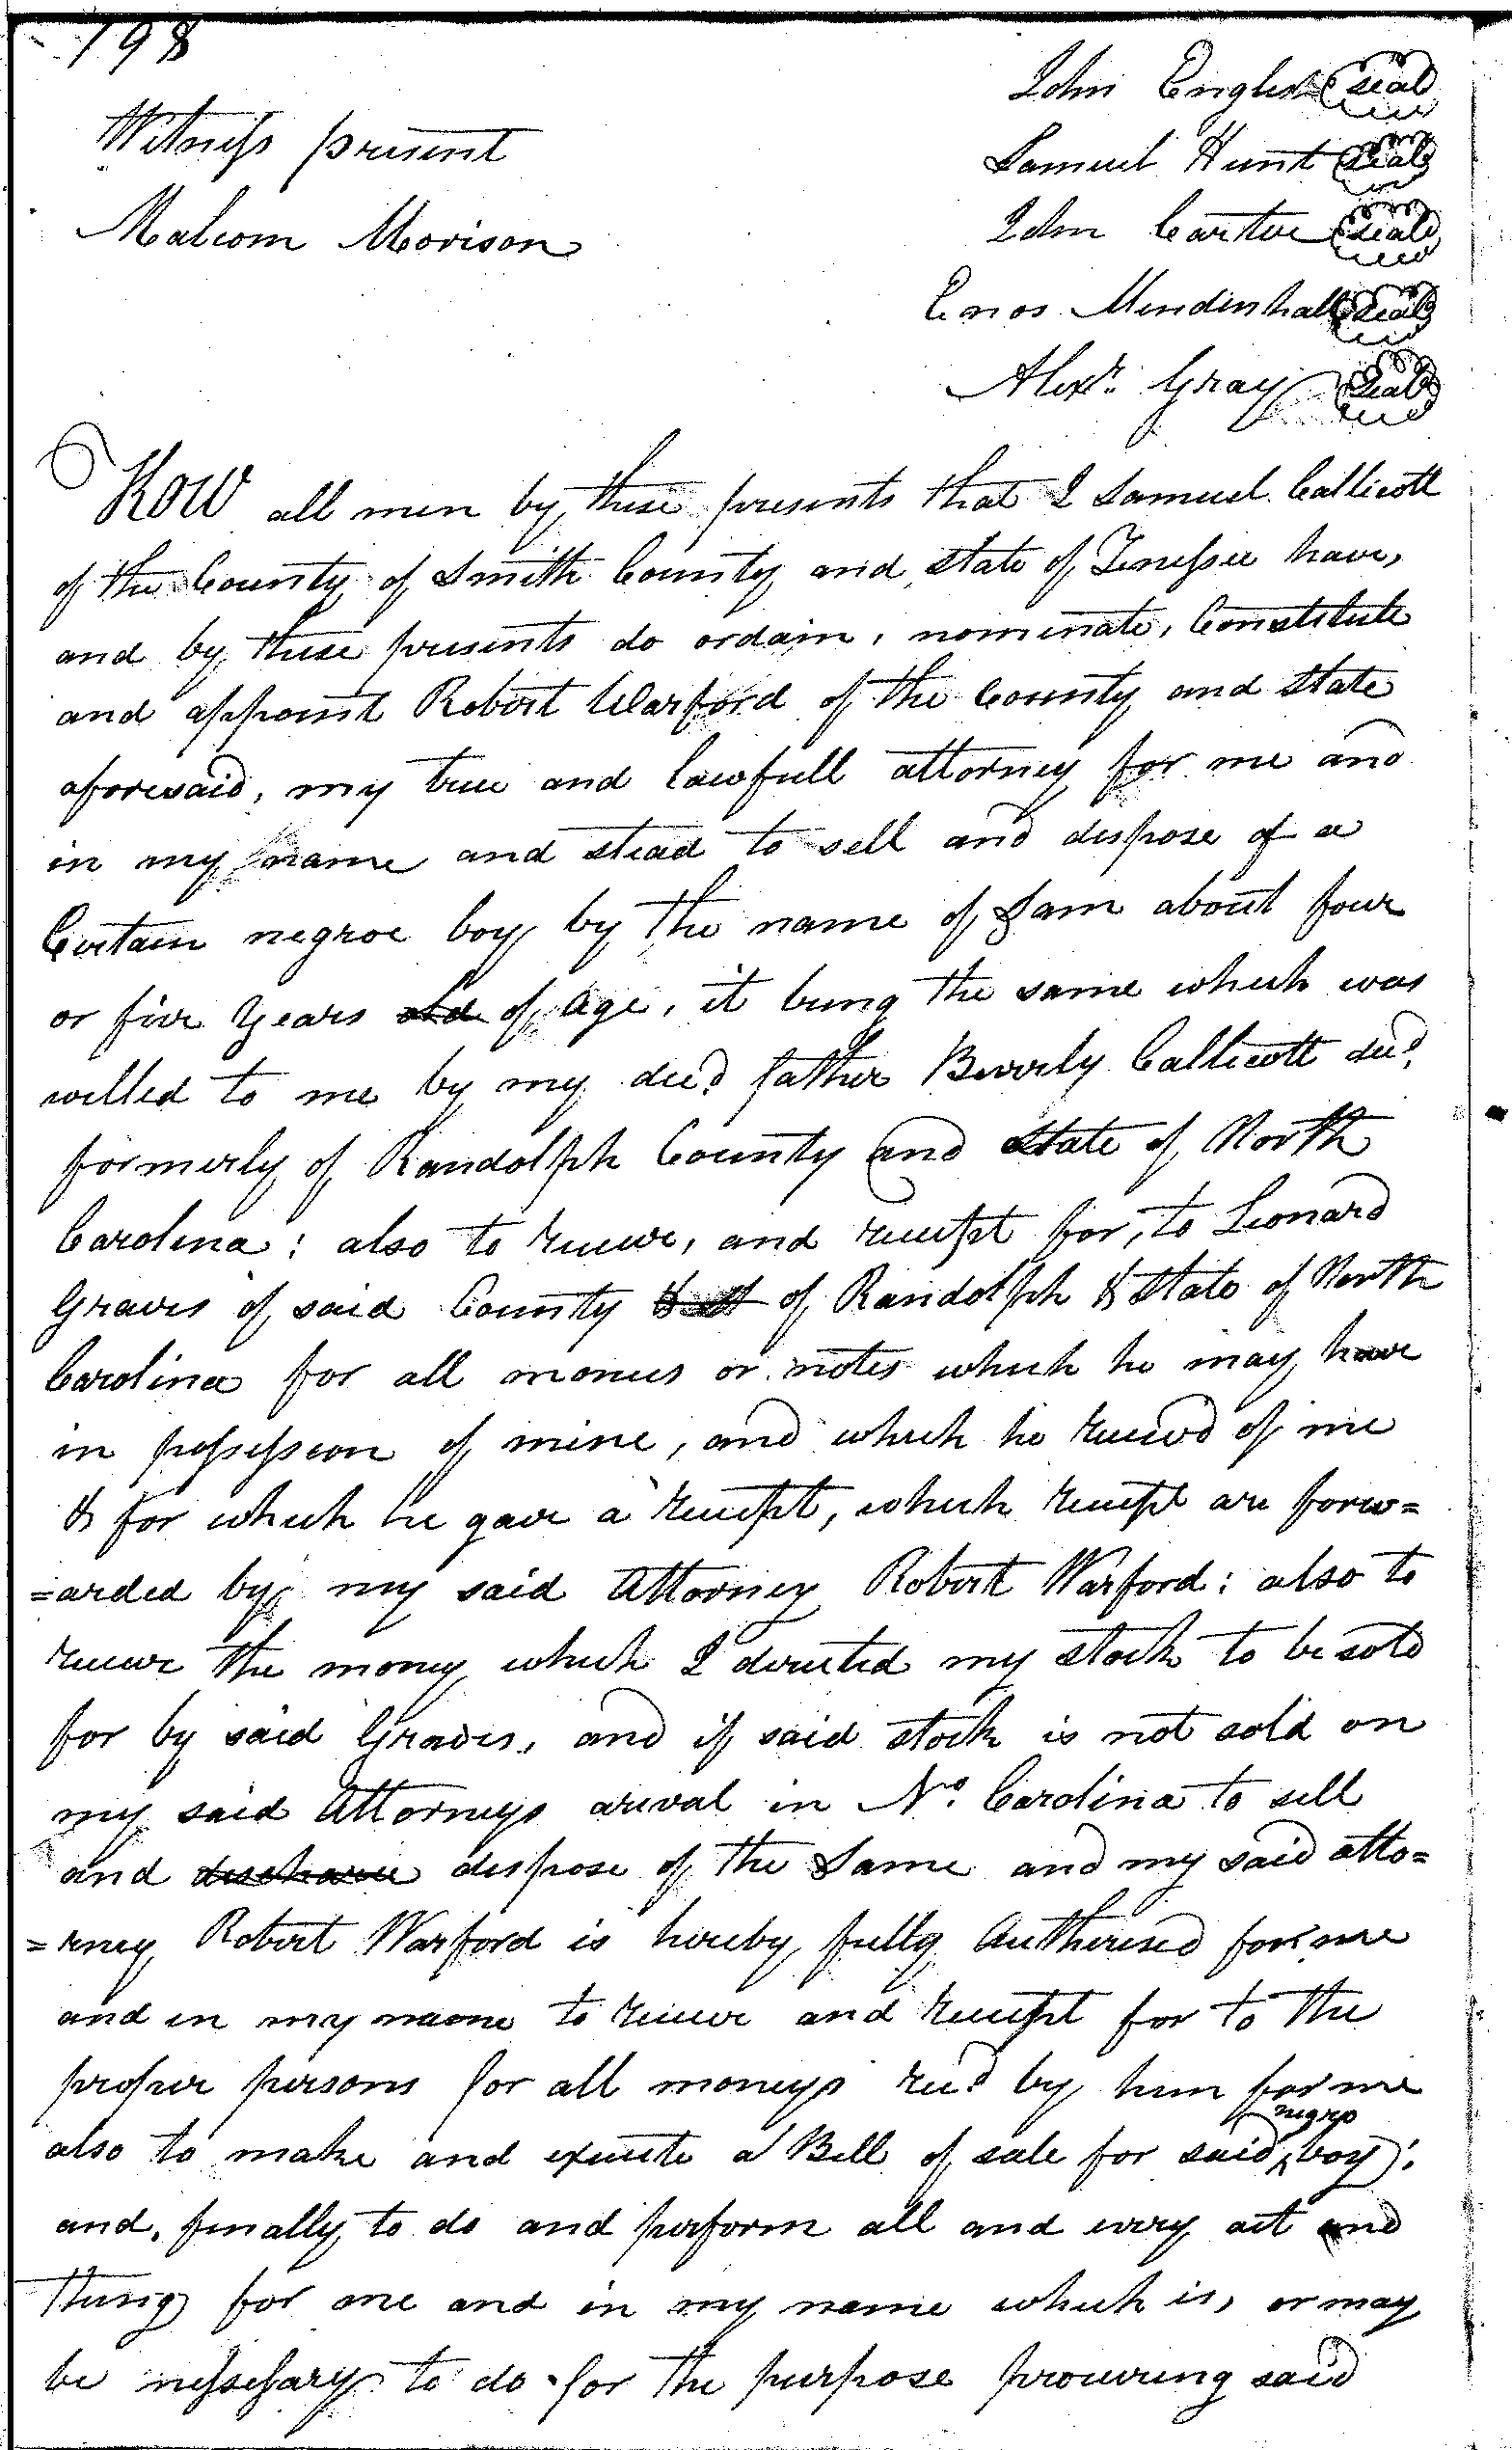 198
John English seal
Witness present
Samuel Hunt seal
Malcom Morison
John Carter seal
Enos Mendinhall seal
Alexr. Gray seal
Know all men by these presents that I Samuel Callicott
of the County of Smith County and state of Tenessee have,
and by these presents do ordain, nominate, Constitute
and appoint Robert Warford of the County and State
aforesaid, my true and lawfull attorney for me and
in my name and stead to sell and dispose of a
Certain negroe boy by the name of Sam about four
or five years old of age, it being the same which was
willed to me by my decd father Beverly Callicott decd.
formerly of Randolph County and State of North
Carolina; also to receive, and receipt for, to Leonard
Graves of said County & st of Randolph & State of North
Carolina for all monies or notes which he may have
in possession of mine, and which he receivd of me
& for which he gave a receipt, which receipt are forw=
=arded by my said Attorney Robert Warford: also to
receive the money which I directed my stock to be sold
for by said Graves, and if said stock is not sold on
my said Attorneys arival in No. Carolina to sell
and discharge dispose of the Same and my said atto=
=rney Robert Warford is hereby fully Autherised for me
and in my name to receive and receipt for to the
proper persons for all moneys recd by him for me
also to make and execute a Bill of sale for said negro boy;
and, finally to do and perform all and every act and
thing for me and in my name which is, or may
be nessessary to do for the purpose procuring said